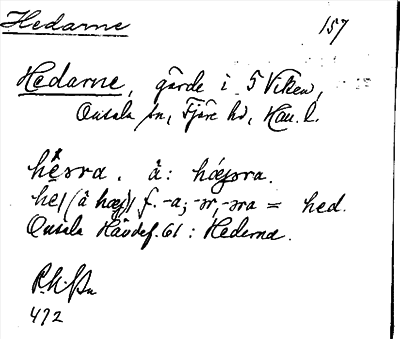 Hedarne 157
Hedarne, gärde i 5 Viken,
Onsala sn, Fjäre hd, Hall. l.
hę̂ərа. å: hǿjəra.
he(å høj) f. -a; -ər, -əra = hed.
Onsala Hävdef. 61: Hederna.
472